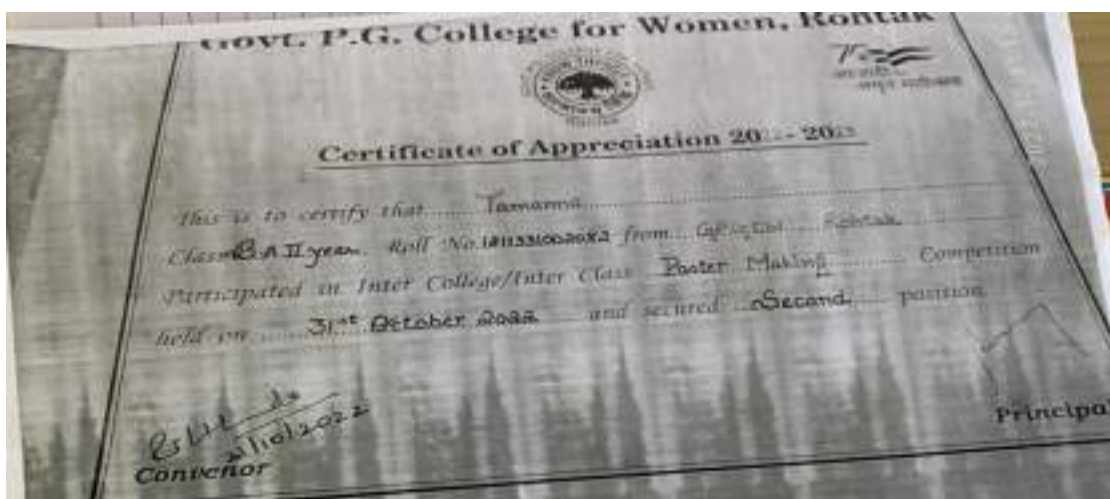 Govt. P.G. College for Women, Rohtak
Certificate of Appreciation 2022-2023
This is to certify that Tamanna
Class B.A II year Roll No. from Rohtak
Participated in Inter College/Inter Class Poster Making Competition
held on 31st October 2022 and secured Second position
31/10/2022
Convenor
Principal